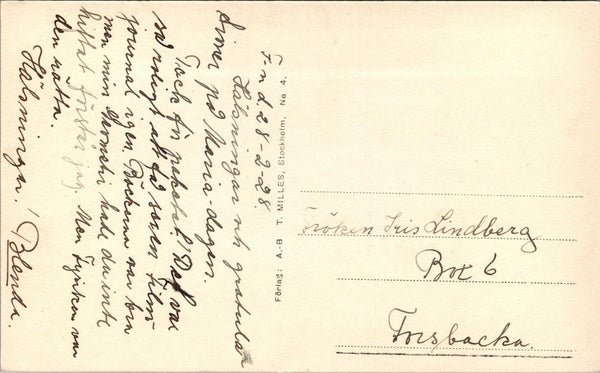 F-n d. 28-2-28.
Hälsningar och gratula-
tioner på Maria-dagen.
Tack för paketet! Det var
så roligt att få sådan film-
journal igen. Böckerna var bra
men min Geometri hade du inte
hittat förstår jag. Men Fysiken var
den rätta.
Hälsningar! Blenda.
Förlag: A.-B. T. MILLES, Stockholm, No 4.
Fröken Iris Lindberg
Box 6
Forsbacka.